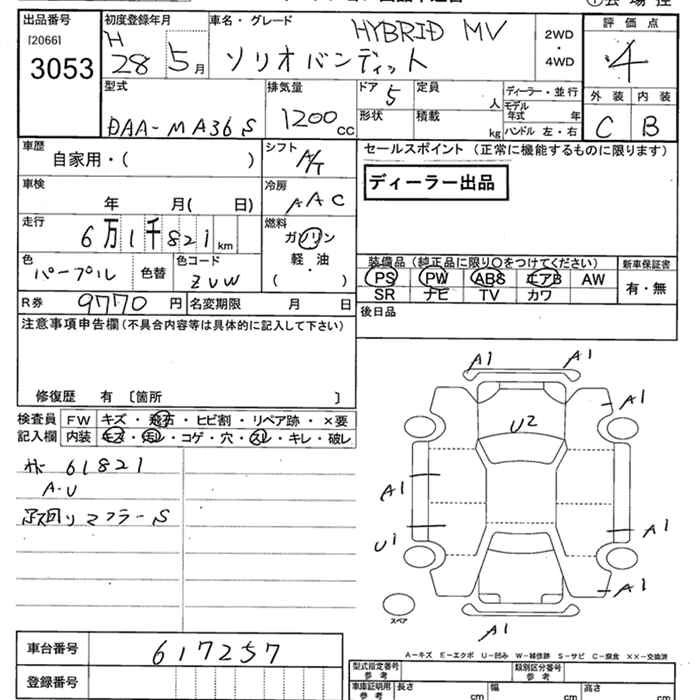 出品番号 初度登録年月 車名・グレード 評価点
[2066] H HYBRID MV 2WD
3053 28 5月 ソリオバンディット ・ 4
4WD
型式 排気量 ドア 5 定員 人 ディーラー・並行 外装 内装
DAA-MA36S 1200cc 形状 積載 kg モデル年式 年 C B
ハンドル 左・右
車歴 シフト セールスポイント(正常に機能するものに限ります)
自家用・( ) A/T ディーラー出品
車検 冷房
年 月( 日) AAC
走行 燃料
6万1千821km ガソリン
軽・油
( )
色 色替 色コード 装備品(純正品に限り○をつけてください) 新車保証書
パープル ZUW PS PW ABS エアB AW 有・無
SR ナビ TV カワ
R券 9770円 名変期限 月 日 後日品
注意事項申告欄(不具合内容等は具体的に記入して下さい)
修復歴 有 〔箇所 〕
検査員 FW キズ・飛石・ヒビ割・リペア跡・×要
記入欄 内装 キズ・汚レ・コゲ・穴・スレ・キレ・破レ
61821
A-U
マフラーS
A1 A1
A1
U2
A1
U1 A1
A1
A1
スペア
A-キズ E-エクボ U-凹み W-補修跡 S-サビ C-腐食 ××-交換済
車台番号 617257
登録番号
型式指定番号 参考 類別区分番号 参考
車庫証明用 参考 長さ cm 幅 cm 高さ cm